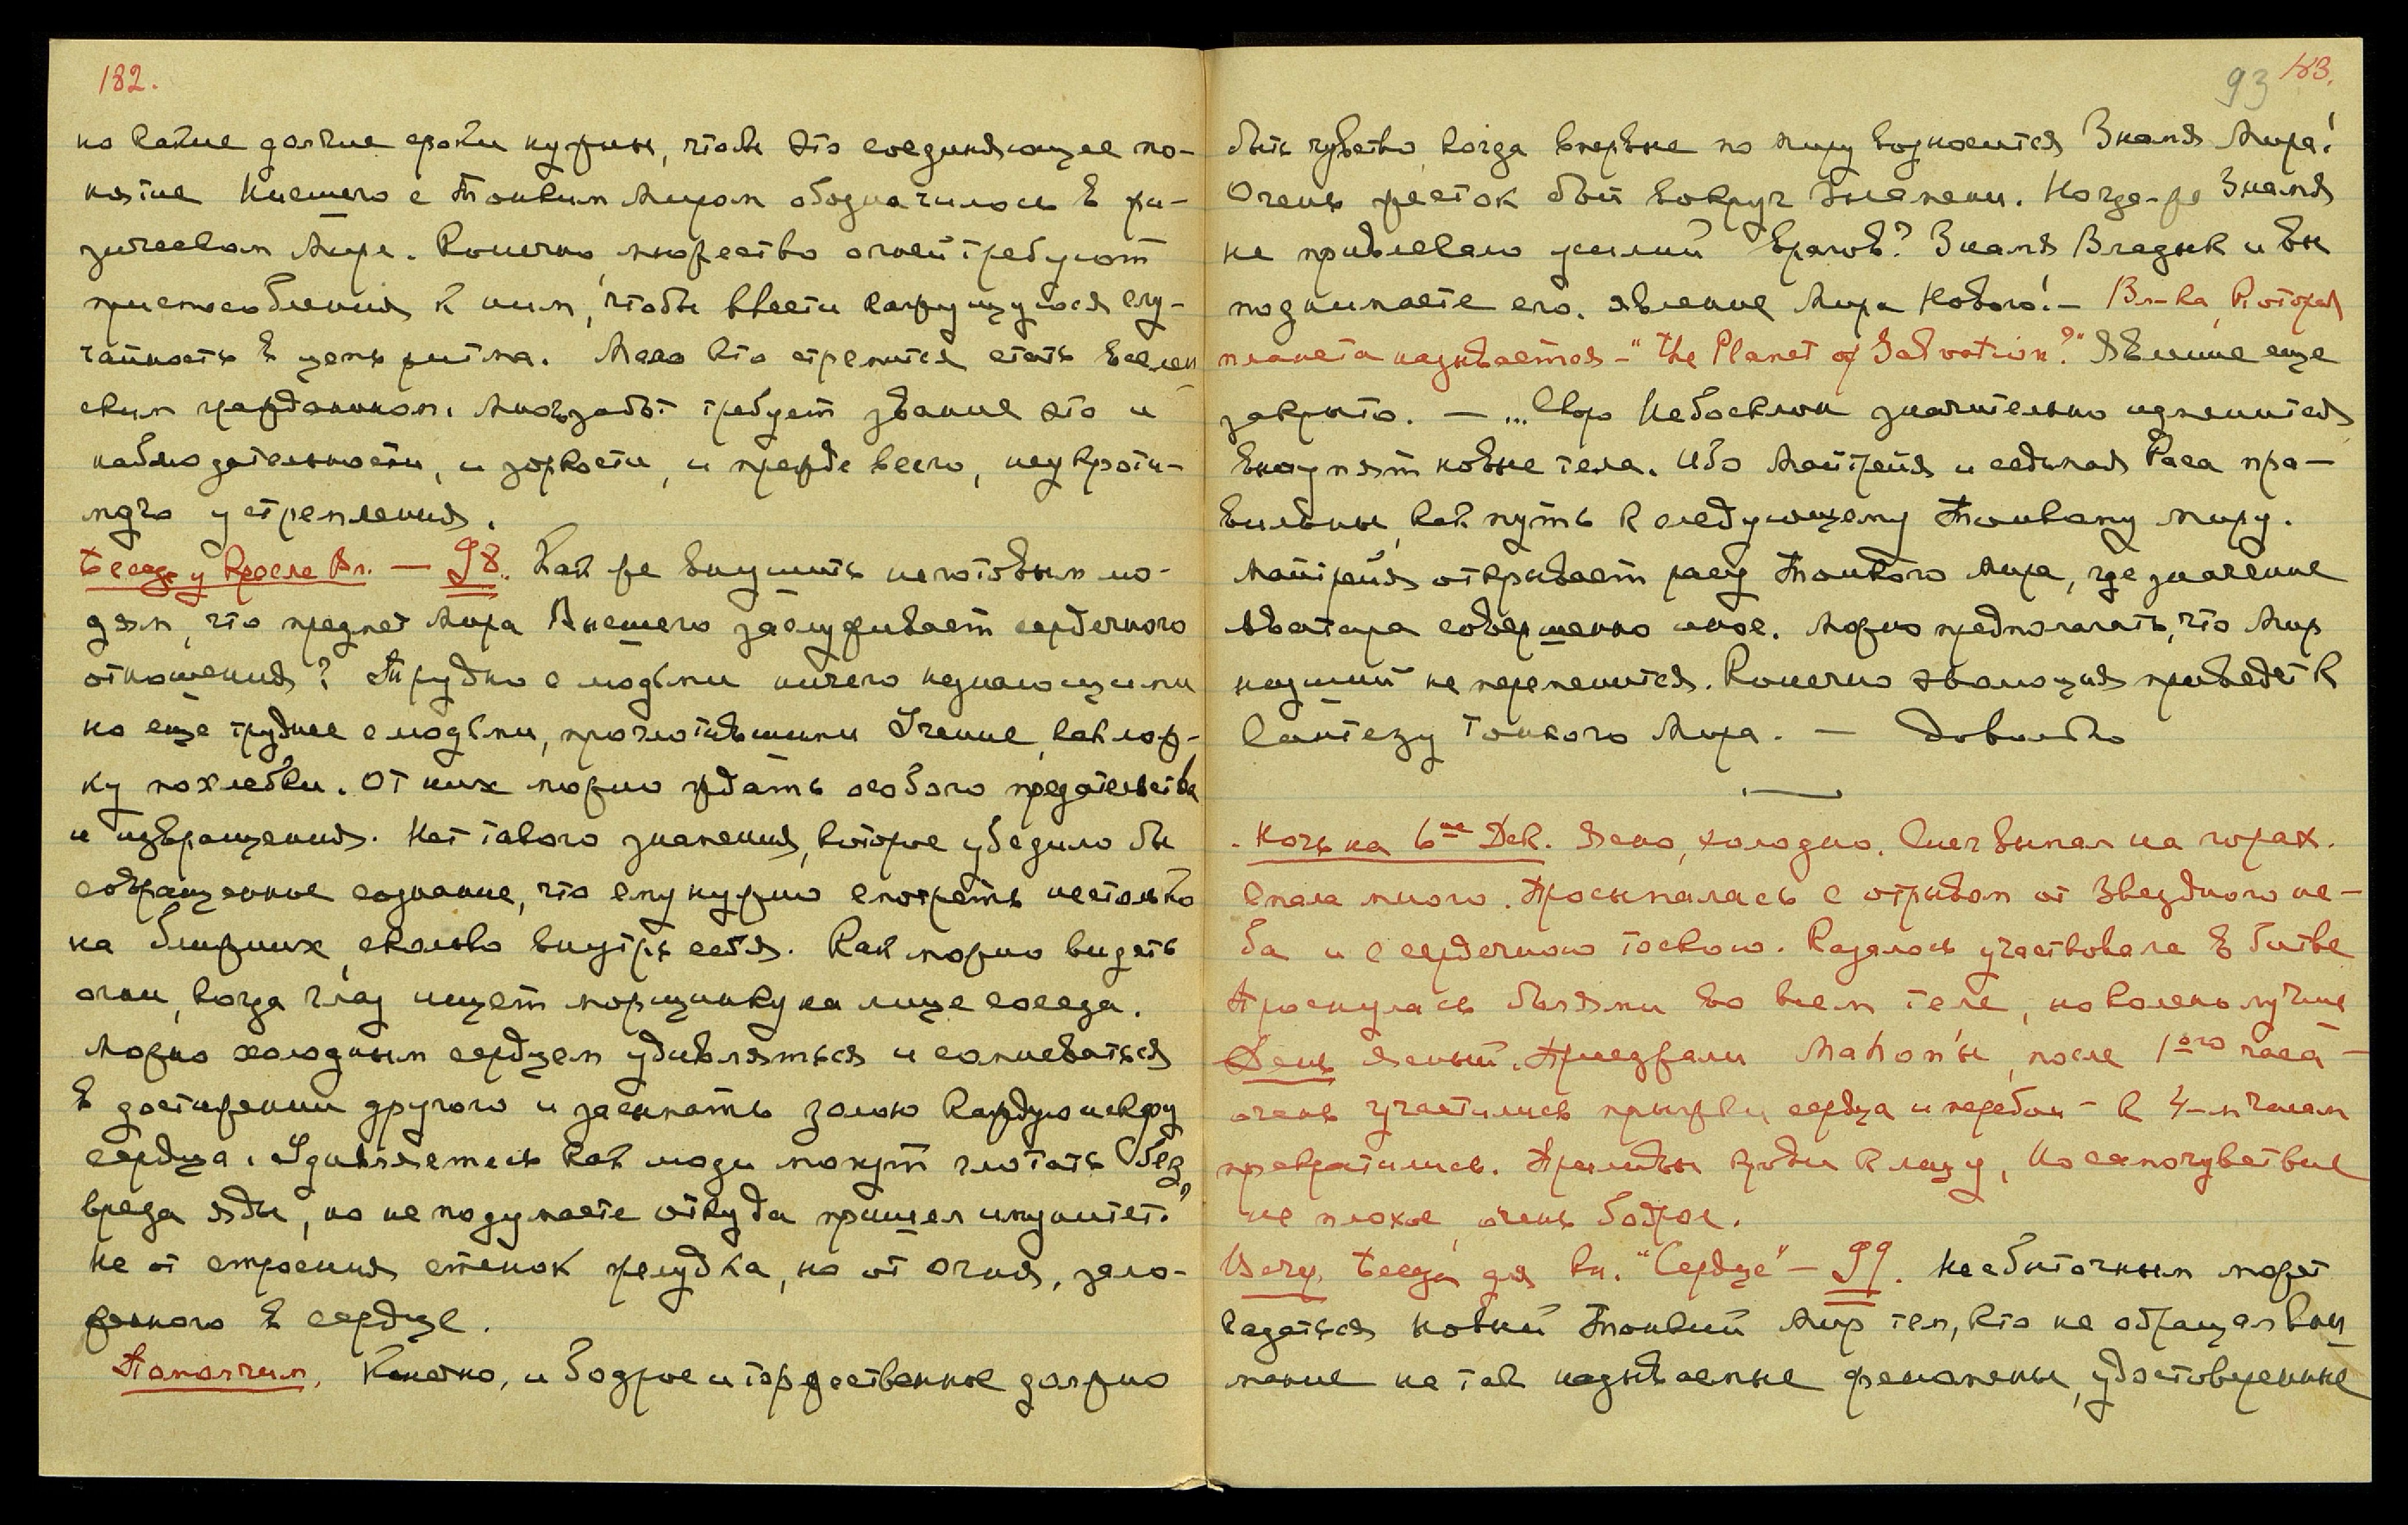 182.
но какие долгие сроки нужны, чтобы это соединяющее по-
нятие Низшего с Тонким Миром обозначилось в фи-
зическом Мире. Конечно, множество огней требуют
приспособления к ним, чтобы ввести кажущуюся слу-
чайность в цепь ритма. Мало кто стремится стать вселен
ским гражданином. Много забот требует звание это и
наблюдательности, и зоркости, и прежде всего, неукроти-
мого устремления.
Беседа у Кресла Вл. — 98. Как же внушить неготовым лю-
дям, что предмет Мира Высшего заслуживает сердечного
отношения? Трудно с людьми ничего незнающими
но еще труднее с людьми, проглотившими Учение, как лож-
ку похлебки. От них можно ждать особого предательства
и извращения. Нет такого знамения, которое убедило бы
совращенное сознание, что ему нужно смотреть не столько
на ближних, сколько внутрь себя. Как можно видеть
огни, когда глаз ищет морщинку на лице соседа.
Можно холодным сердцем удивляться и сомневаться
в достижении другого и засыпать золою каждую искру
сердца. Удивляетесь как люди могут глотать без
вреда яды, но не подумаете откуда пришел иммунитет?
Не от строения стенок желудка, но от огня, зало-
женного в сердце.
Помолчим. Конечно, и бодрое и торжественное должно
93 183.
быть чувство, когда впервые по миру возносится Знамя Мира!
Очень жесток бой вокруг Знамени. Когда-же Знамя
не привлекало усилий врагов? Знамя Владык и вы
поднимаете его. Явление Мира Нового! — Вл-ка, которая
планета называется — "the Planet of Salvation?" Явление еще
закрыто. — ... Скоро Небосклон значительно изменится,
вступят новые тела. Ибо Майтрейя и седьмая Раса пра-
вильны, как путь к следующему Тонкому миру.
Майтрейя открывает расу Тонкого Мира, где значение
Аватара совершенно иное. Можно предполагать, что Мир
низший не переменится. Конечно эволюция приведет к
Синтезу Тонкого Мира. — Довольно
Ночь на 6ое Дек. Ясно, холодно. Снег выпал на горах.
Спала много. Просыпалась с отрывом от Звездного не-
ба и с сердечною тоскою. Казалось участвовала в битве
Проснулась болями во всем теле, но колено лучше
День ясный. Приезжали Mahon'ы, после 1ого часа —
очень участились прыжки сердца и перебои — к 4-м часам
прекратились. Приливы крови к лицу, но самочувствие
не плохое, очень бодрое.
Вечер. Беседа для Кн. "Сердце" — 99. Несбыточным может
казаться новый Тонкий Мир тем, кто не обращал вни
мание на так называемые феномены, удостоверенные